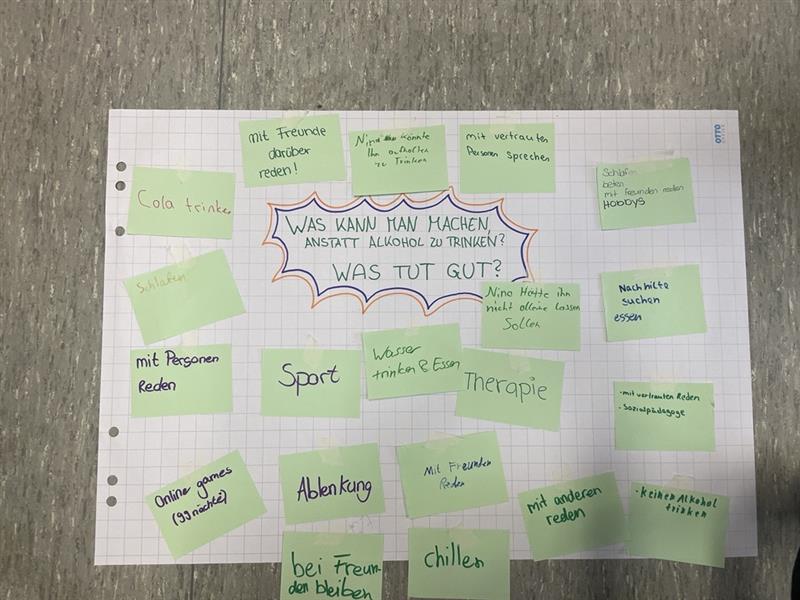 OTTO
mit Freunde
darüber
reden!
Nino könnte
ihn aufhalten
zu Trinken
mit vertrauten
Personen Sprechen
Schlafen
beten
mit Freunden reden
HOBBYS
Cola trinken
WAS KANN MAN MACHEN,
ANSTATT ALKOHOL ZU TRINKEN?
WAS TUT GUT?
Schlafen
Nino Hätte ihn
nicht alleine lassen
Sollen
Nachhilfe
suchen
essen
mit Personen
Reden
Sport
Wasser
trinken & Essen
Therapie
- mit vertrauten Reden
- Sozialpädagoge
Online games
(99 nächte)
Ablenkung
Mit Freunden
Reden
mit anderen
reden
- keinen Alkohol
trinken
bei Freun-
den bleiben
chillen